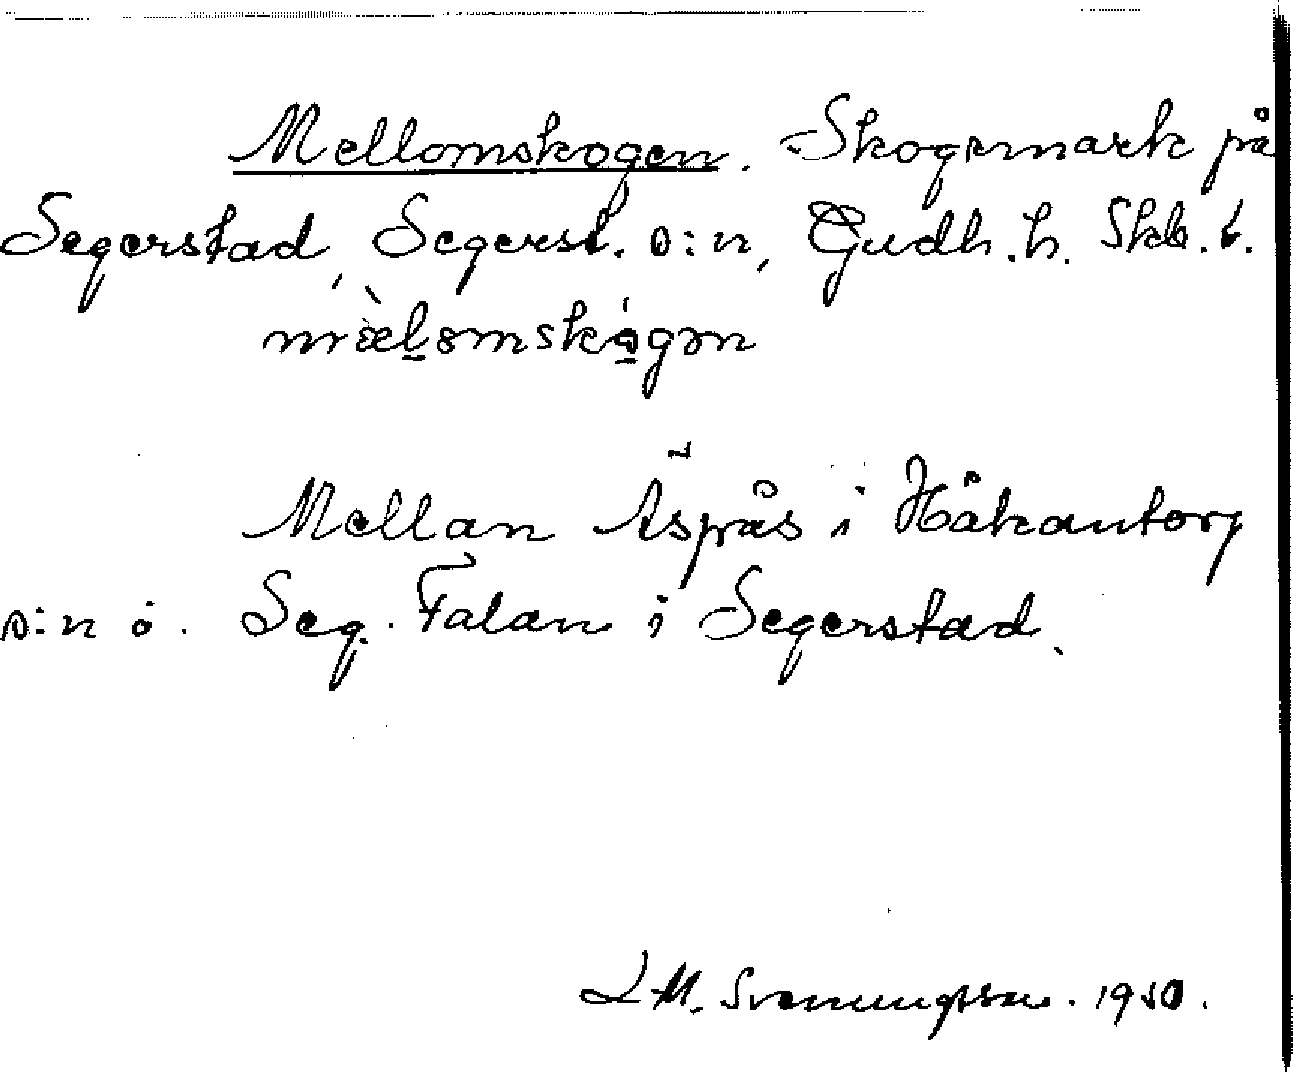 Mellomskogen. Skogsmark på
Segerstad, Segerst. s:n, Gudh. h. Skb. l.
mæ̀lomskógən
Mellan Äsprås i Håkantorp
s:n o. Seg. Falan i Segerstad.
L M. Svenungsson. 1930.